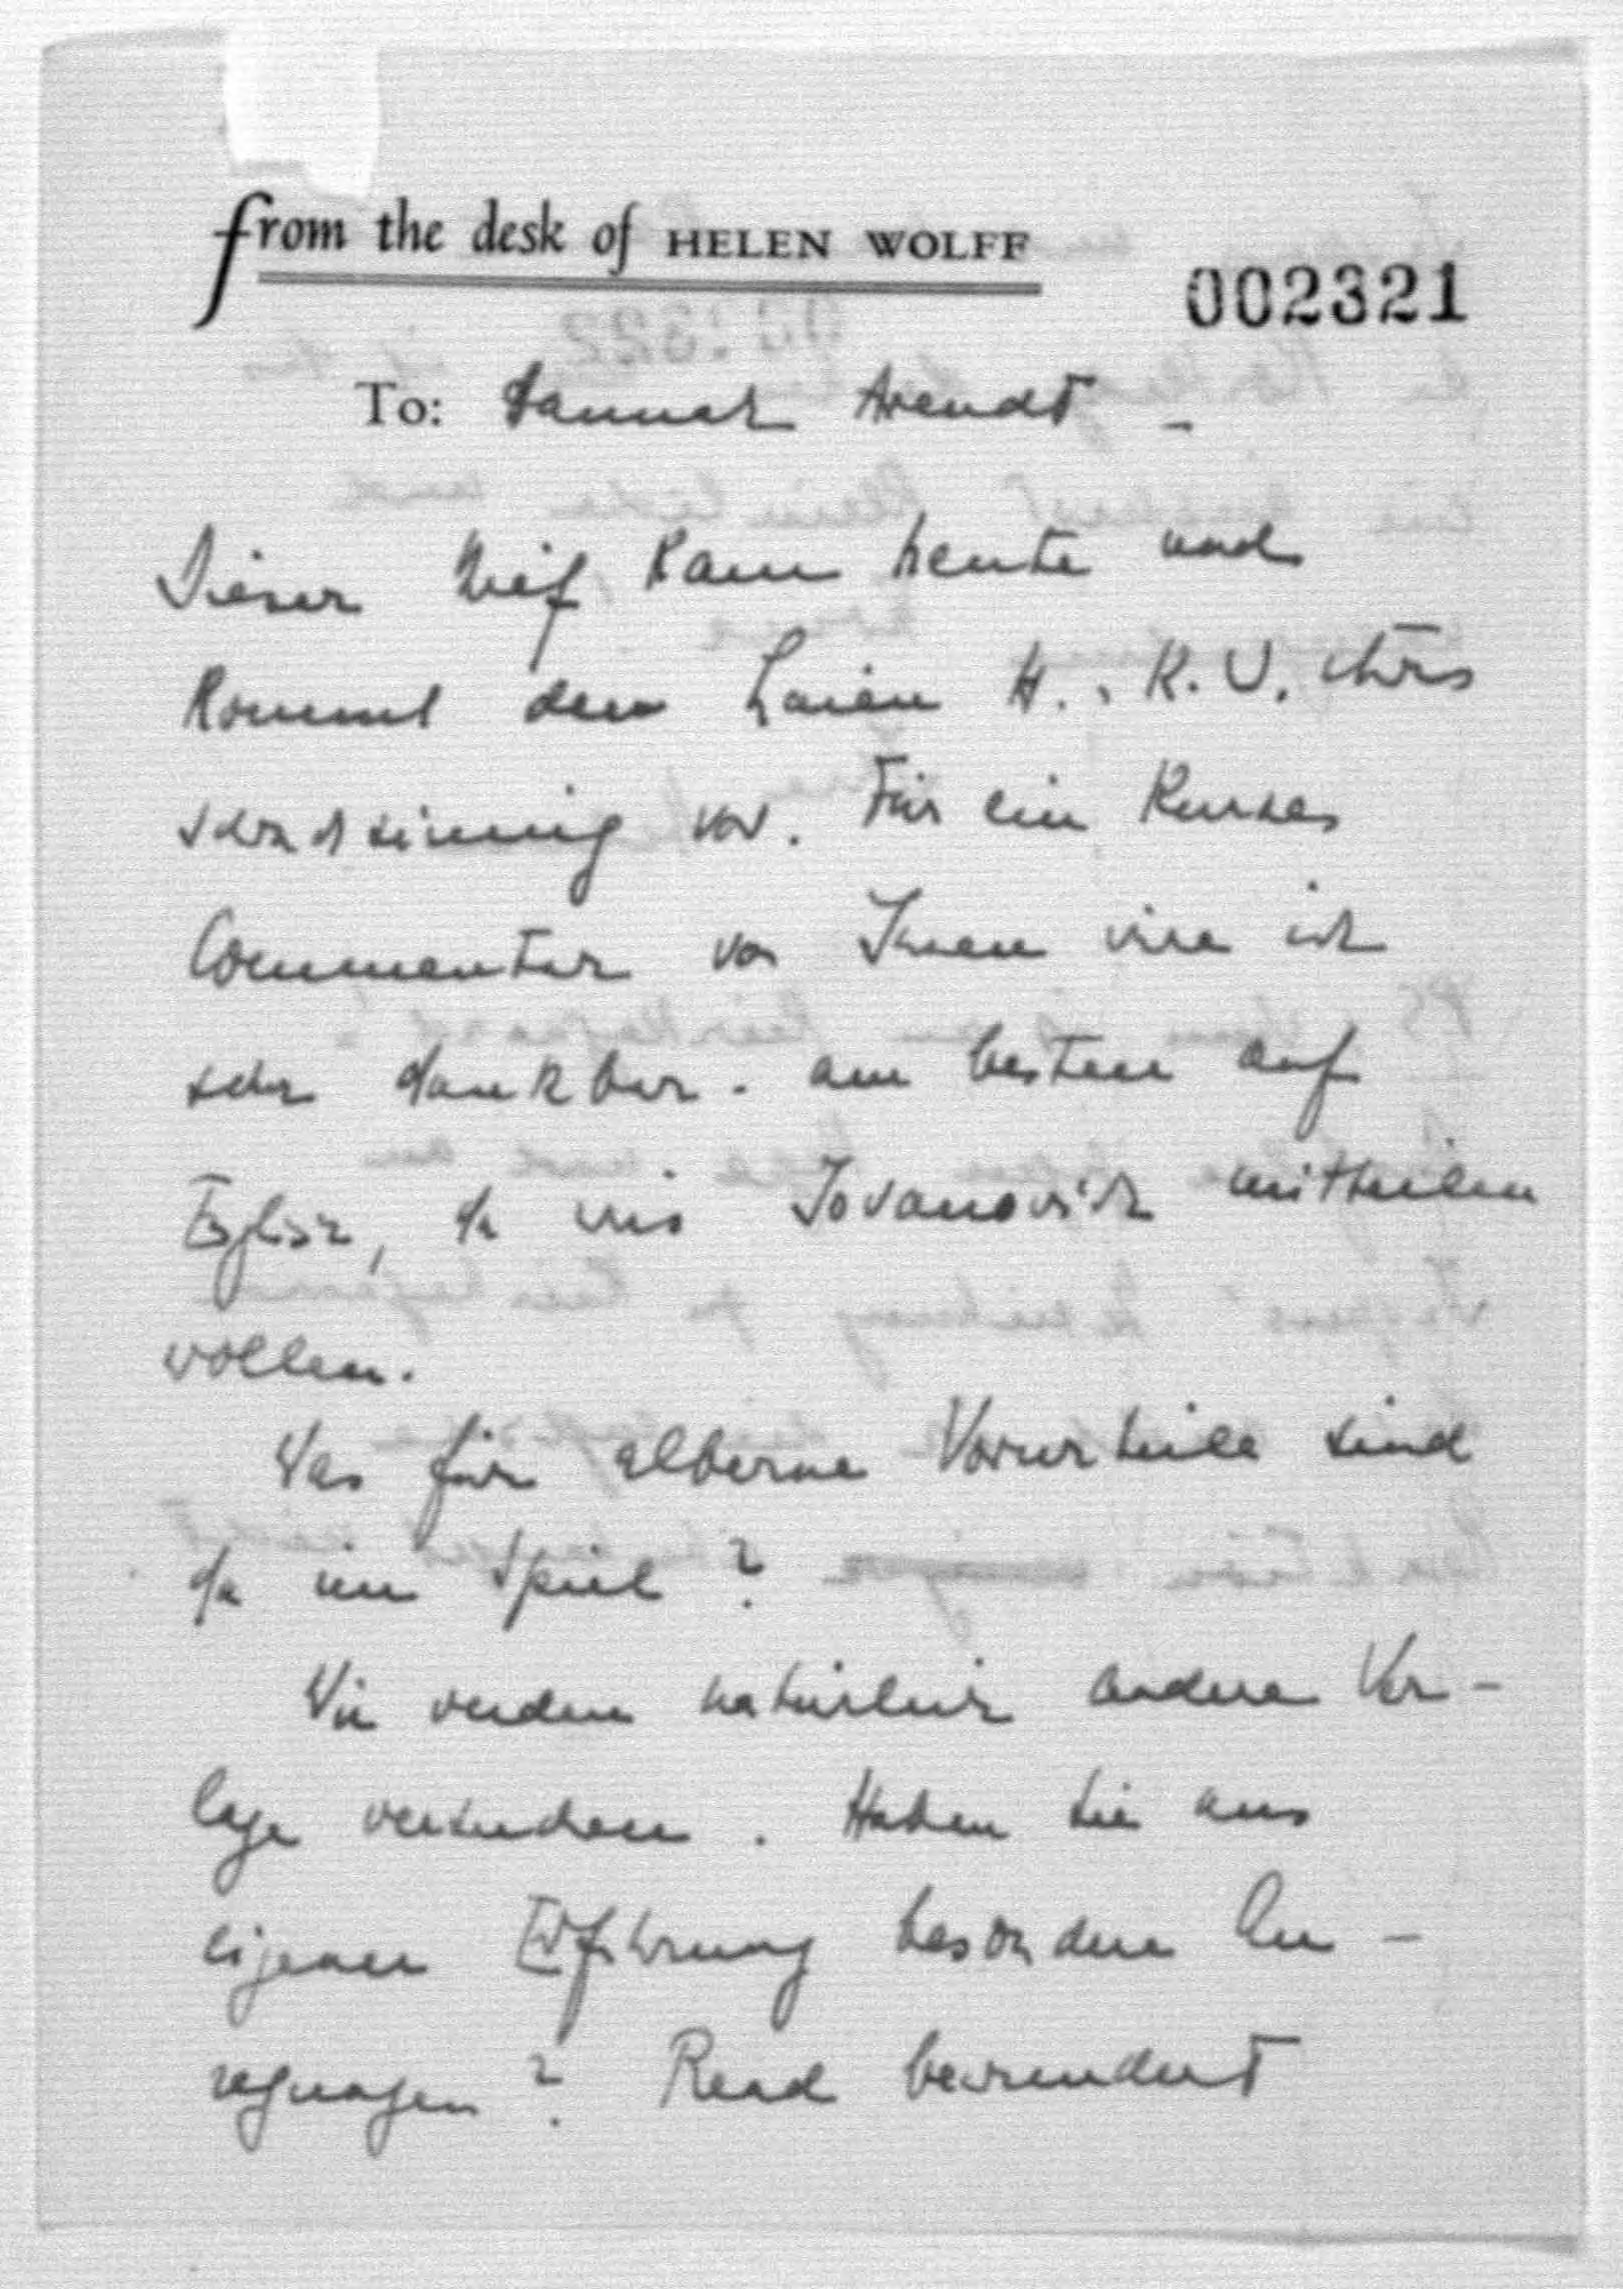 from the desk of HELEN WOLFF
002321
To: Hannah Arendt -
Dieser Brief kam heute und
kommt den Laien H. K. U. etwas
schwachsinnig vor. Für ein kurzes
Commentar von Ihnen wäre ich
sehr dankbar - am besten auf
Englisch, da wir's Jovanovich mitteilen
wollen.
Was für alberne Vorurteile sind
da im Spiel?
Wir werden natürlich andere Ver-
lage versuchen. Haben Sie aus
eigener Erfahrung besondere An-
regungen? Read bewundert